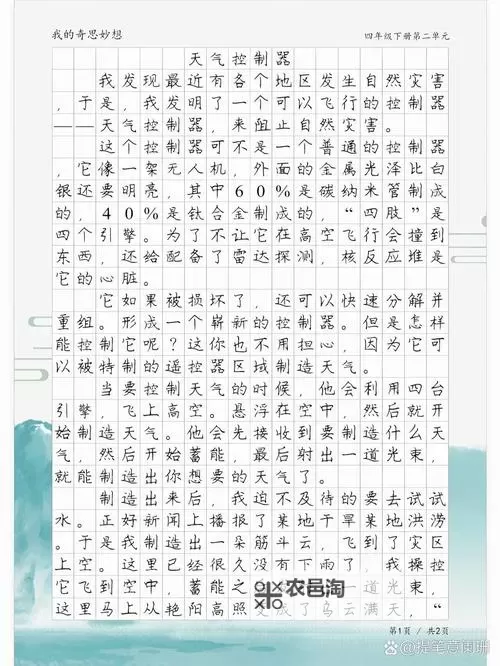 我的奇思妙想
四年级下册第二单元
天气控制器
我发现最近有各个地区发生自然灾害
，于是，我发明了一个可以飞行的控制器
——天气控制器，来阻止自然灾害。
这个控制器可不是一个普通的控制器
，它像一架无人机，外面的金属光泽比白
银还要明亮，其中60%是碳纳米管制成
的，40%是钛合金制成的，“四肢”是
四个引擎。为了不让它在高空飞行会撞到
东西，还给配备了雷达探测，核反应堆是
它的心脏。
它如果被损坏了，还可以快速分解并
重组。形成一个崭新的控制器。但是怎样
能控制它呢？这你也不用担心，因为它可
以被特制的遥控器区域制造天气。
当要控制天气的时候，他会利用四台
引擎，飞上高空。悬浮在空中，然后就开
始制造天气。他会先接收到要制造什么天
气，然后开始蓄能，最后射出一道光束，
就能制造出你想要的天气了。
制造出来后，我迫不及待的要去试试
水。正好新闻上播报了某地干旱某地洪涝
。于是我制造出一朵筋斗云，飞到了灾区
上空。这里已经很久没有下雨了，我操控
它飞到空中，蓄能之 一道光束，
这里马上从艳阳高照变成了乌云满天，“
农邑淘
第1页 / 共2页
@提笔意阑珊